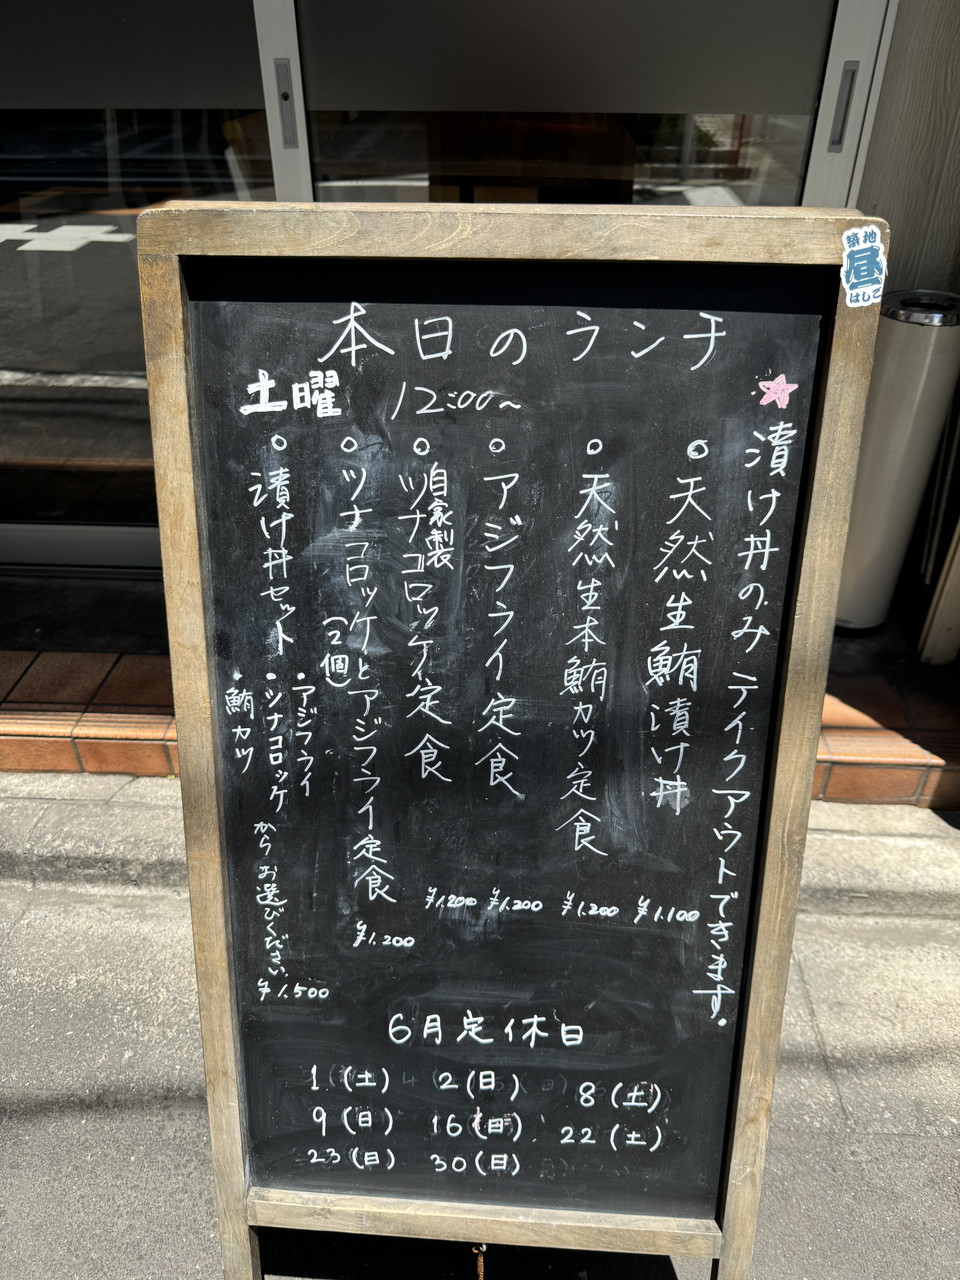 本日のランチ
土曜 12:00~
漬け丼のみ テイクアウトできます。
天然生鮪漬け丼 ¥1.100
天然生本鮪カツ定食 ¥1.200
アジフライ定食 ¥1.200
自家製
ツナコロッケ定食 ¥1.200
ツナコロッケとアジフライ定食 ¥1.200
(2個)
漬け丼セット
・アジフライ
・ツナコロッケ
・鮪カツ
からお選びください。
¥1.500
6月定休日
1(土) 2(日) 8(土)
9(日) 16(日) 22(土)
23(日) 30(日)
築地
昼
はしご